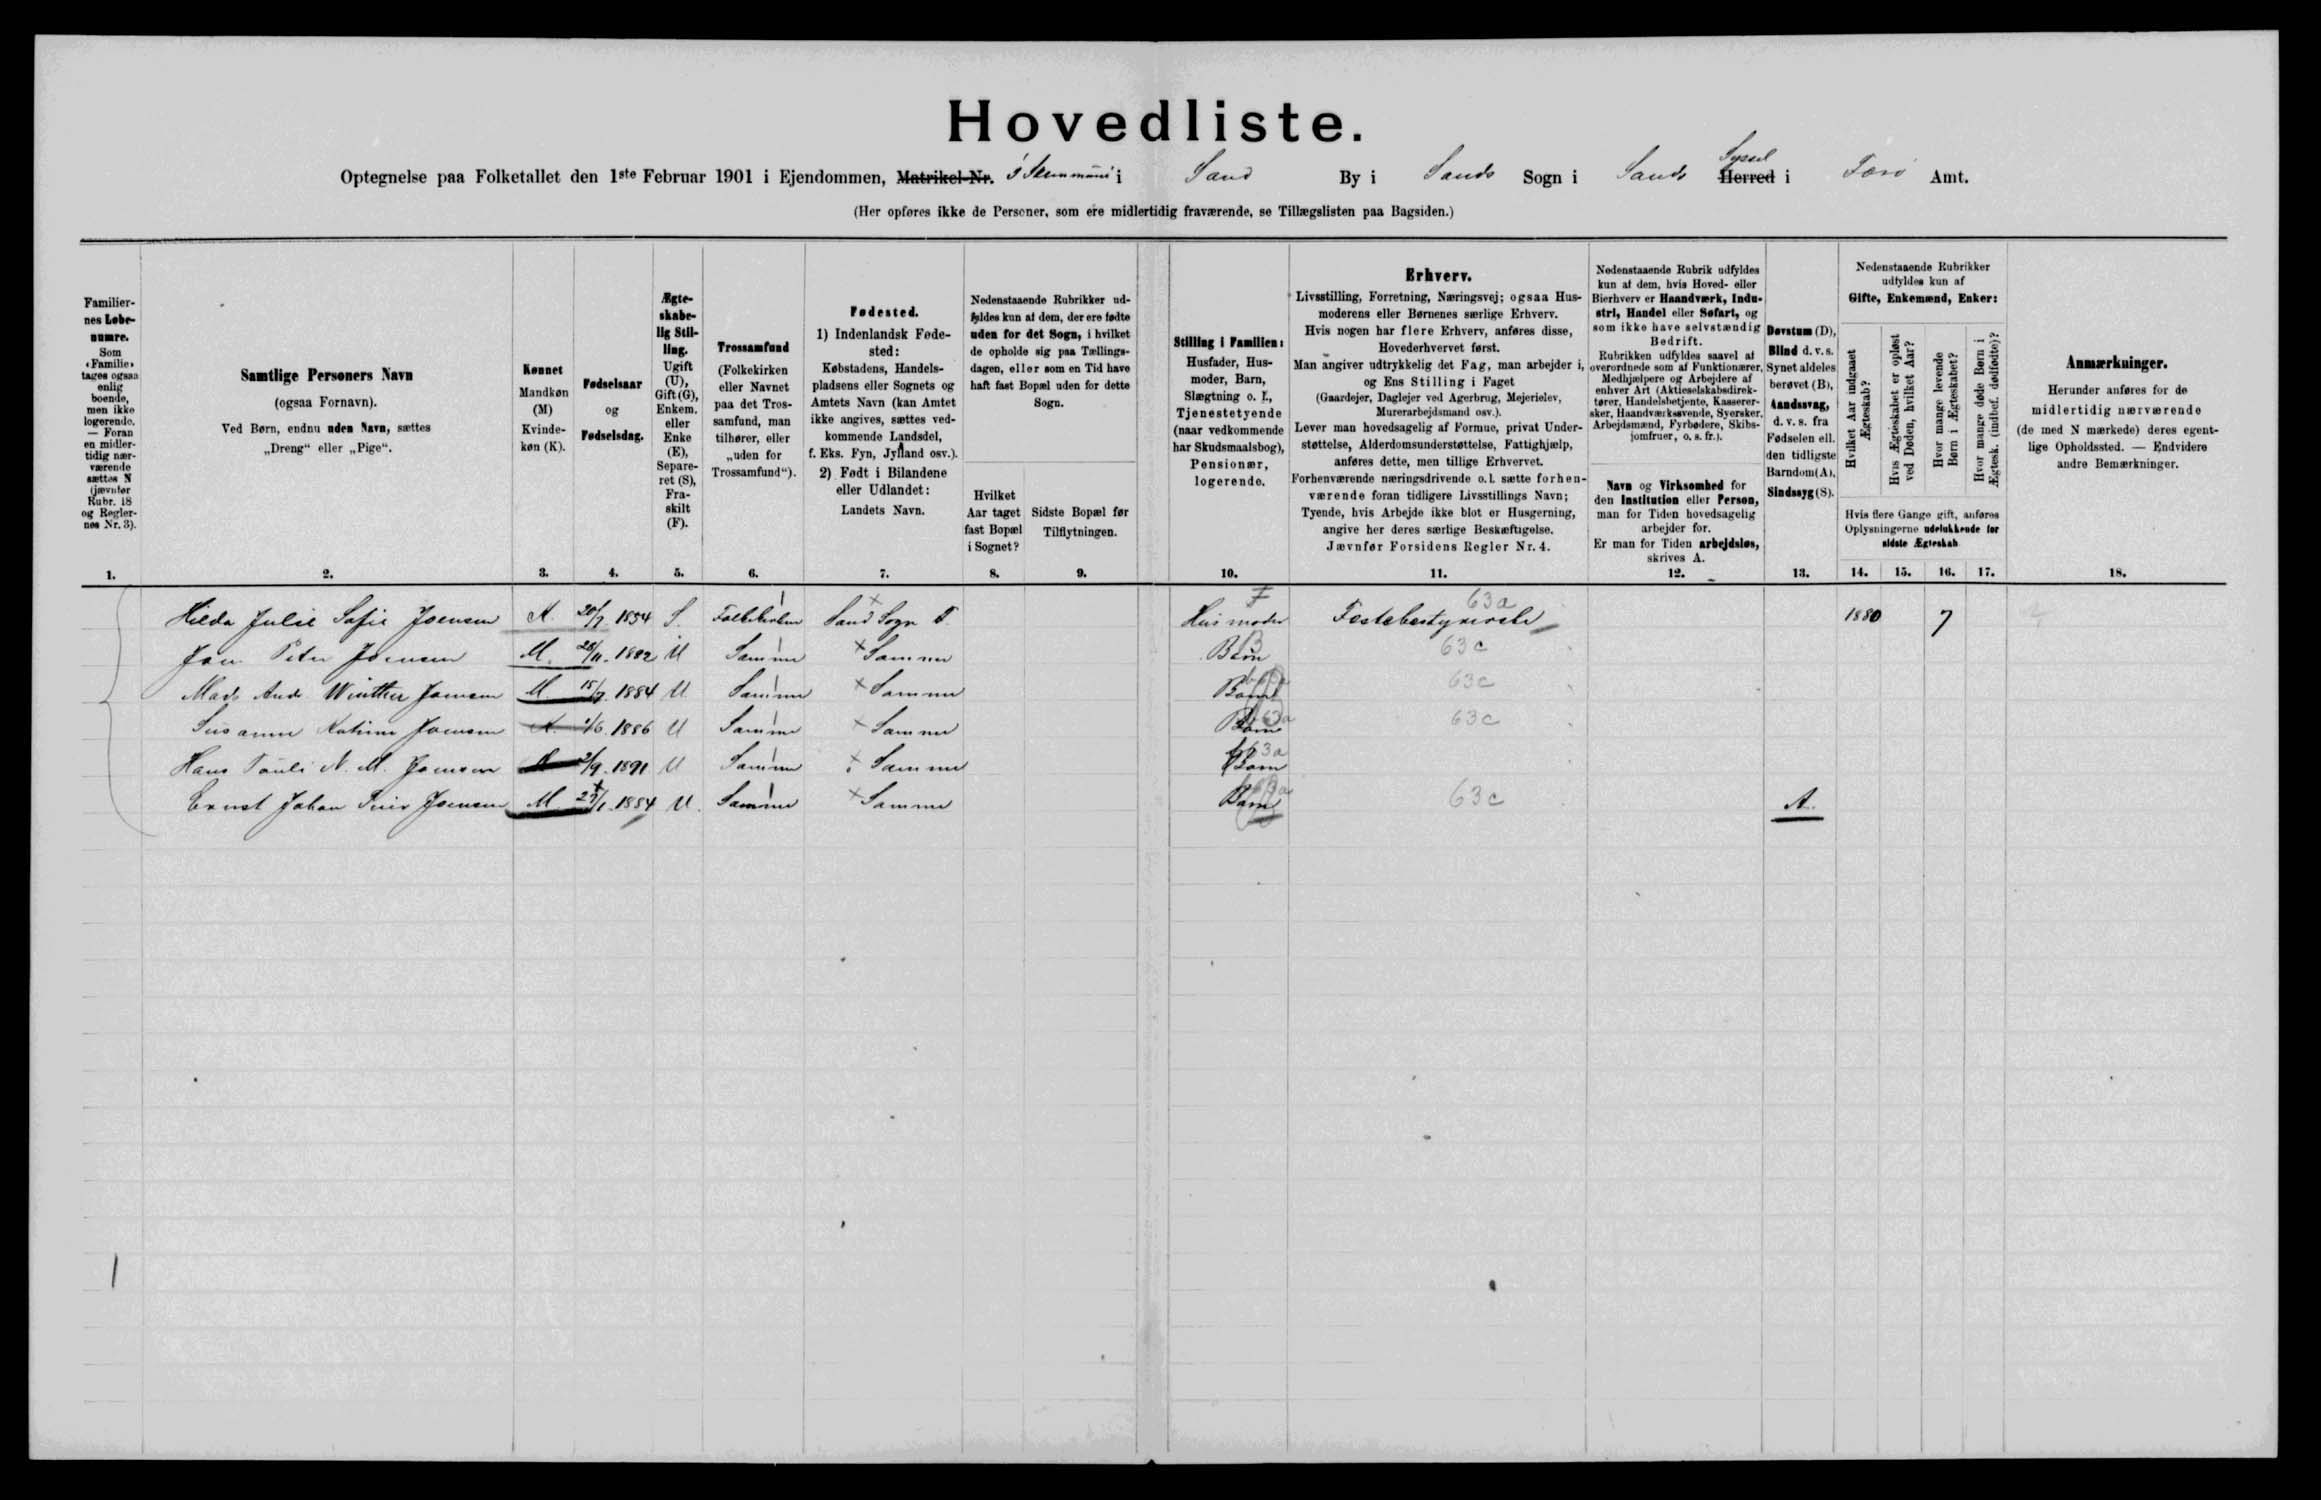 Hovedliste.
Optegnelse paa Folketallet den 1ste Februar 1901 i Ejendommen, Matrikel-Nr. i Sand By i Sands Sogn i Sands Herred Syssel i Færø Amt.
(Her opføres ikke de Personer, som ere midlertidig fraværende, se Tillægslisten paa Bagsiden.)
Familier-
nes Løbe-
numre.
Som
«Familie»
tages ogsaa
enlig
boende,
men ikke
logerende.
— Foran
en midler-
tidig nær-
værende
sættes N
(jævnfør
Rubr. 18
og Regler-
nes Nr. 3).
1.
Samtlige Personers Navn
(ogsaa Fornavn).
Ved Børn, endnu uden Navn, sættes
„Dreng“ eller „Pige“.
2.
Kønnet
Mandkøn
(M)
Kvinde-
køn (K).
3.
Fødselsaar
og
Fødselsdag.
4.
Ægte-
skabe-
lig Stil-
ling.
Ugift
(U),
Gift (G),
Enkem.
eller
Enke
(E),
Separe-
ret (S),
Fra-
skilt
(F).
5.
Trossamfund
(Folkekirken
eller Navnet
paa det Tros-
samfund, man
tilhører, eller
„uden for
Trossamfund“).
6.
Fødested.
1) Indenlandsk Føde-
sted:
Købstadens, Handels-
pladsens eller Sognets og
Amtets Navn (kan Amtet
ikke angives, sættes ved-
kommende Landsdel,
f. Eks. Fyn, Jylland osv.).
2) Født i Bilandene
eller Udlandet:
Landets Navn.
7.
Nedenstaaende Rubrikker ud-
fyldes kun af dem, der ere fødte
uden for det Sogn, i hvilket
de opholde sig paa Tællings-
dagen, eller som en Tid have
haft fast Bopæl uden for dette
Sogn.
Hvilket
Aar taget
fast Bopæl
i Sognet?
8.
Sidste Bopæl før
Tilflytningen.
9.
Stilling i Familien:
Husfader, Hus-
moder, Barn,
Slægtning o. l.,
Tjenestetyende
(naar vedkommende
har Skudsmaalsbog),
Pensionær,
logerende.
10.
Erhverv.
Livsstilling, Forretning, Næringsvej; ogsaa Hus-
moderens eller Børnenes særlige Erhverv.
Hvis nogen har flere Erhverv, anføres disse,
Hovederhvervet først.
Man angiver udtrykkelig det Fag, man arbejder i,
og Ens Stilling i Faget
(Gaardejer, Daglejer ved Agerbrug, Mejerielev,
Murerarbejdsmand osv.).
Lever man hovedsagelig af Formue, privat Under-
støttelse, Alderdomsunderstøttelse, Fattighjælp,
anføres dette, men tillige Erhvervet.
Forhenværende næringsdrivende o. l. sætte forhen-
værende foran tidligere Livsstillings Navn;
Tyende, hvis Arbejde ikke blot er Husgerning,
angive her deres særlige Beskæftigelse.
Jævnfør Forsidens Regler Nr. 4.
11.
Nedenstaaende Rubrik udfyldes
kun af dem, hvis Hoved- eller
Bierhverv er Haandværk, Indu-
stri, Handel eller Søfart, og
som ikke have selvstændig
Bedrift.
Rubrikken udfyldes saavel af
overordnede som af Funktionærer,
Medhjælpere og Arbejdere af
enhver Art (Aktieselskabsdirek-
tører, Handelsbetjente, Kasserer-
sker, Haandværkssvende, Syersker,
Arbejdsmænd, Fyrbødere, Skibs-
jomfruer, o. s. fr.).
Navn og Virksomhed for
den Institution eller Person,
man for Tiden hovedsagelig
arbejder for.
Er man for Tiden arbejdsløs,
skrives A.
12.
Døvstum (D),
Blind d. v. s.
Synet aldeles
berøvet (B),
Aandssvag,
d. v. s. fra
Fødselen ell.
den tidligste
Barndom (A),
Sindssyg (S).
13.
Nedenstaaende Rubrikker
udfyldes kun af
Gifte, Enkemænd, Enker:
Hvilket Aar indgaaet
Ægteskab?
Hvis Ægteskabet er opløst
ved Døden, hvilket Aar?
Hvor mange levende
Børn i Ægteskabet?
Hvor mange døde Børn i
Ægtesk. (indbef. dødfødte)?
Hvis flere Gange gift, anføres
Oplysningerne udelukkende for
sidste Ægteskab
14. 15. 16. 17.
Anmærkninger.
Herunder anføres for de
midlertidig nærværende
(de med N mærkede) deres egent-
lige Opholdssted. — Endvidere
andre Bemærkninger.
18.
Hilda Julie Sofie Joensen K. 20/7 1854 S. Folkekirken Sand Sogn Husmoder Festebestyrerske 63a 1880 7
Joen Peter Joensen M. 28/11 1882 U Samme Samme Barn 63c
Mads And. Winther Joensen M. 15/7 1884 U Samme Samme Barn 63c
Susanne Katrine Joensen K. 1/6 1886 U Samme Samme Barn 63a 63c
Hans Pauli N. M. Joensen 2/9 1891 U Samme Samme Barn 63a
Ernst Johan Joensen M 1884 U. Samme Samme Barn 63a 63c A.